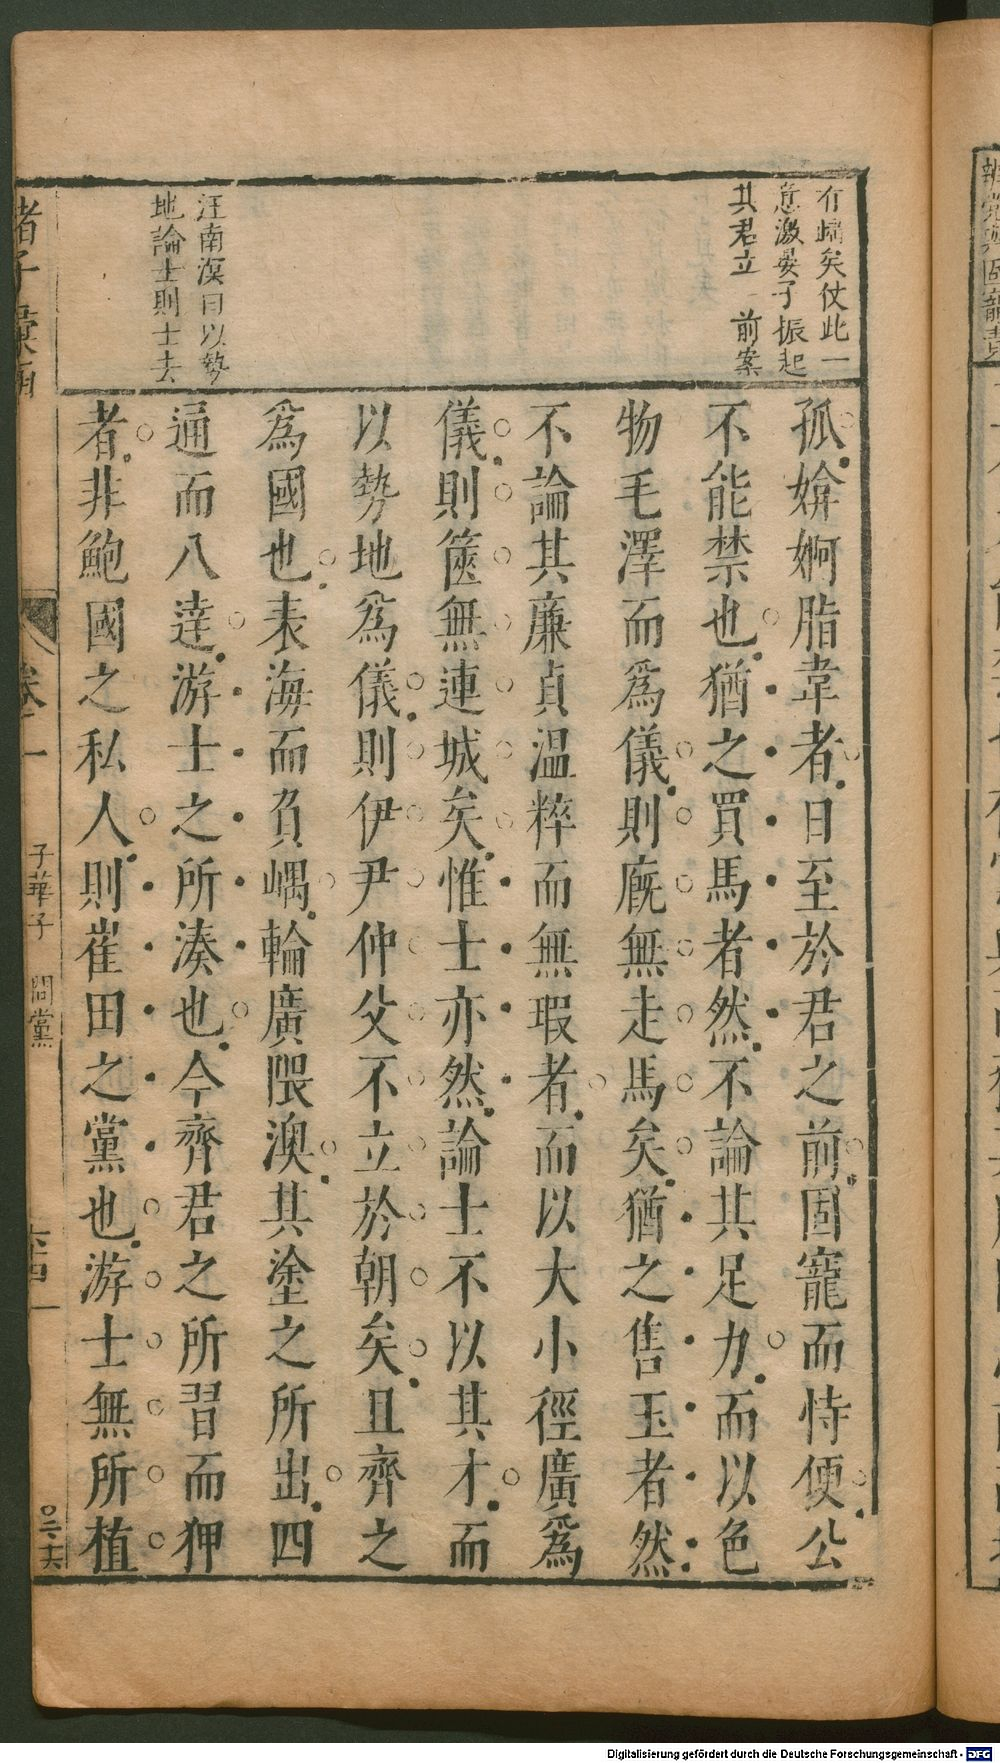 有歸矣仗此一
意激晏子振起
其君立 前案
孤媕婀脂韋者日至於君之前固寵而恃便公
不能禁也猶之買馬者然不論其足力而以色
物毛澤而爲儀則廐無走馬矣猶之售玉者然
不論其廉貞温粹而無瑕者而以大小徑廣爲
儀則篋無連城矣惟士亦然論士不以其才而
以勢地爲儀則伊尹仲父不立於朝矣且齊之
爲國也表海而負嵎輪廣隈澳其塗之所出四
通而八達游士之所湊也今齊君之所習而狎
者非鮑國之私人則崔田之黨也游士無所植
汪南溟曰以勢
地論士則士去
諸子彙函
卷二
子華子 問黨
Digitalisierung gefördert durch die Deutsche Forschungsgemeinschaft - DFG